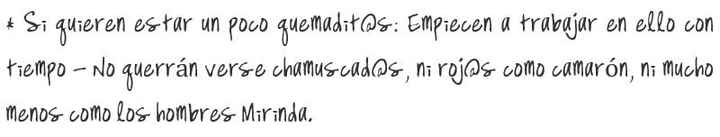 * Si quieren estar un poco quemadit@s: Empiecen a trabajar en ello con
tiempo – No querrán verse chamuscad@s, ni roj@s como camarón, ni mucho
menos como los hombres Mirinda.